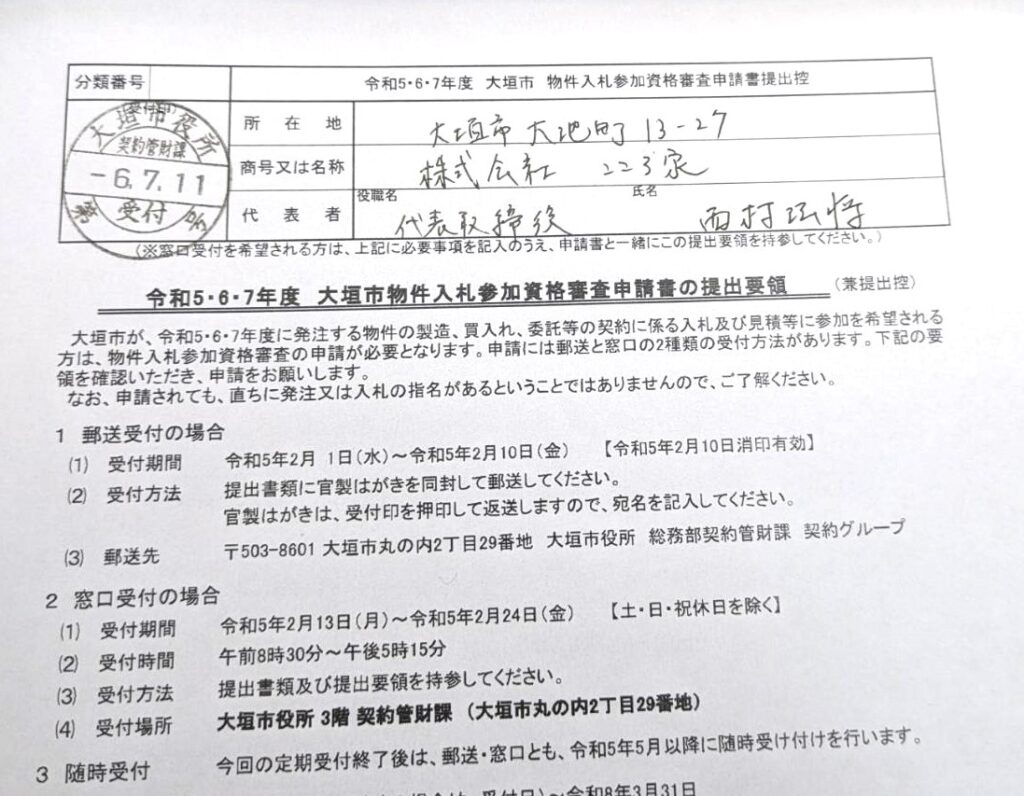 分類番号
令和5・6・7年度 大垣市 物件入札参加資格審査申請書提出控
大垣市役所
契約管財課
-6.7.11
受付
所在地
大垣市大池町13-27
商号又は名称
株式会社 223家
代表者
役職名
代表取締役
氏名
西村
将
(※窓口受付を希望される方は、上記に必要事項を記入のうえ、申請書と一緒にこの提出要領を持参してください。)
令和5・6・7年度 大垣市物件入札参加資格審査申請書の提出要領 (兼提出控)
大垣市が、令和5・6・7年度に発注する物件の製造、買入れ、委託等の契約に係る入札及び見積等に参加を希望される
方は、物件入札参加資格審査の申請が必要となります。申請には郵送と窓口の2種類の受付方法があります。下記の要
領を確認いただき、申請をお願いします。
なお、申請されても、直ちに発注又は入札の指名があるということではありませんので、ご了解ください。
1 郵送受付の場合
(1) 受付期間 令和5年2月 1日(水)～令和5年2月10日(金) 【令和5年2月10日消印有効】
(2) 受付方法 提出書類に官製はがきを同封して郵送してください。
官製はがきは、受付印を押印して返送しますので、宛名を記入してください。
(3) 郵送先 〒503-8601 大垣市丸の内2丁目29番地 大垣市役所 総務部契約管財課 契約グループ
2 窓口受付の場合
(1) 受付期間 令和5年2月13日(月)～令和5年2月24日(金) 【土・日・祝休日を除く】
(2) 受付時間 午前8時30分～午後5時15分
(3) 受付方法 提出書類及び提出要領を持参してください。
(4) 受付場所 大垣市役所 3階 契約管財課 (大垣市丸の内2丁目29番地)
3 随時受付 今回の定期受付終了後は、郵送・窓口とも、令和5年5月以降に随時受け付けを行います。
受付日)～令和8年3月31日